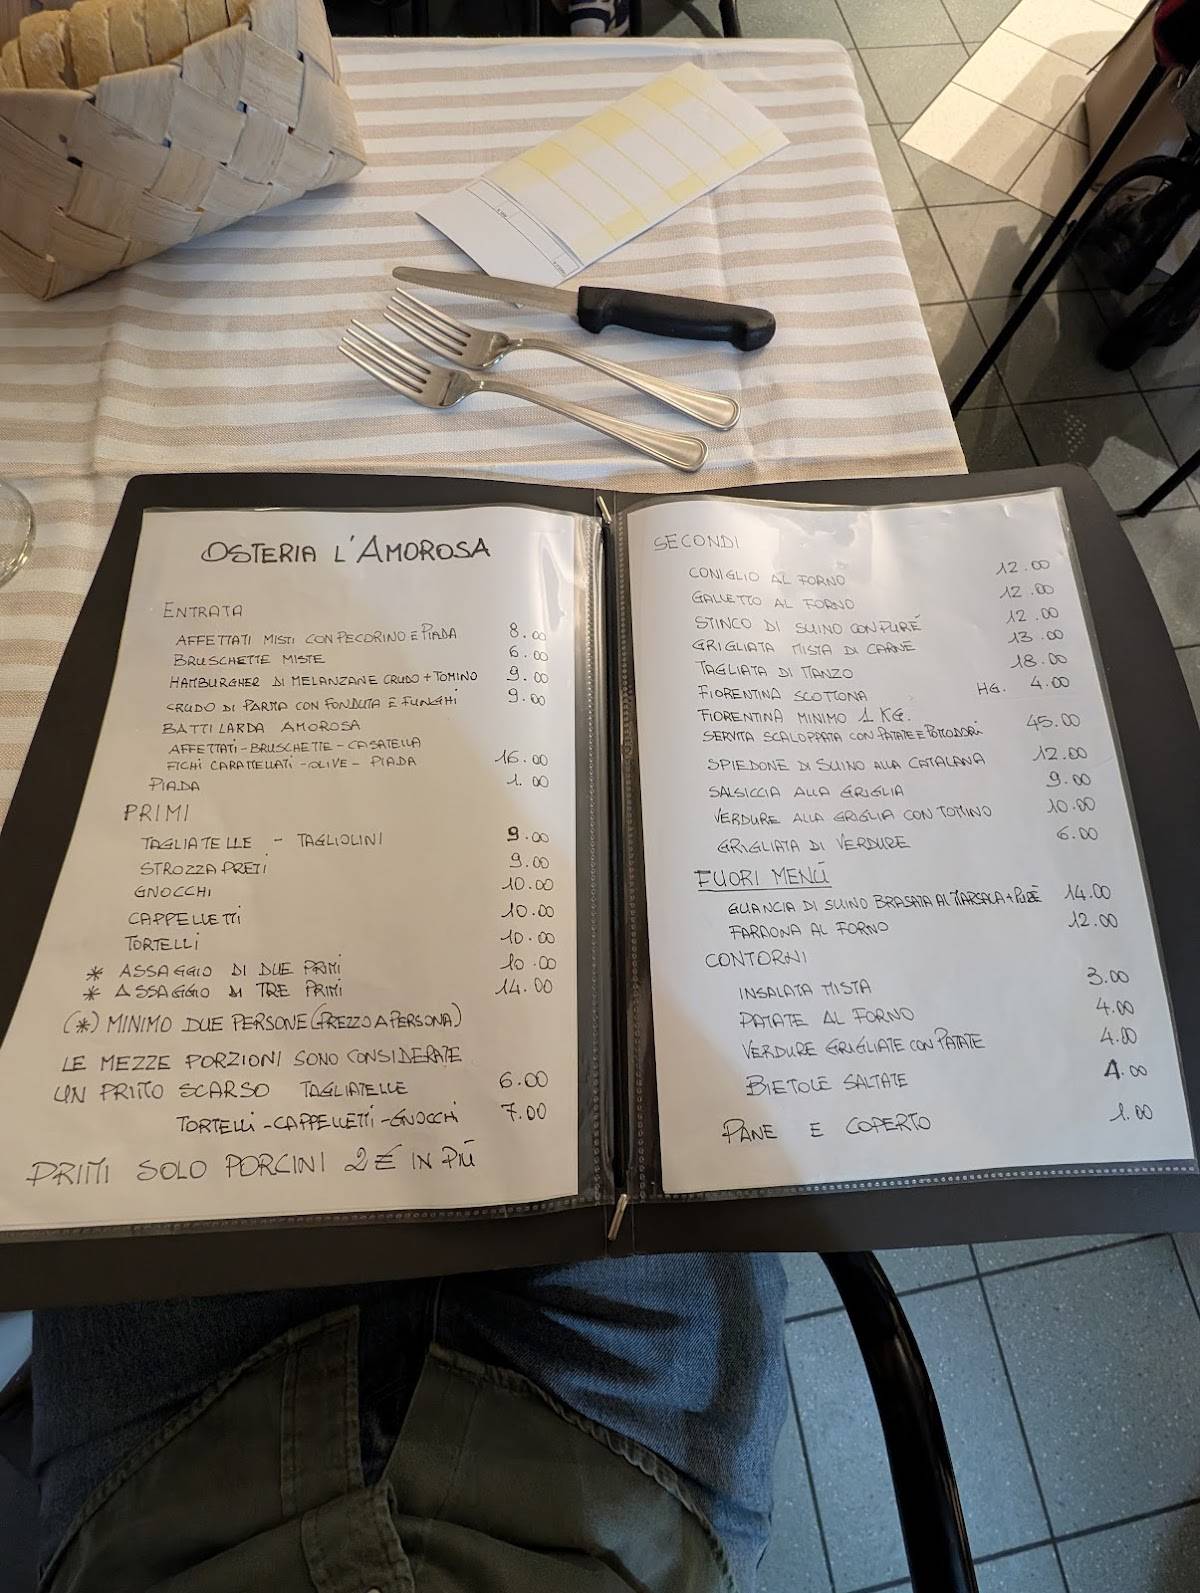 OSTERIA L'AMOROSA
ENTRATA
AFFETTATI MISTI CON PECORINO E PIADA 8.00
BRUSCHETTE MISTE 6.00
HAMBURGHER DI MELANZANE CRUDO + TOMINO 9.00
CRUDO DI PARMA CON FONDUTA E FUNGHI 9.00
BATTILARDA AMOROSA
AFFETTATI - BRUSCHETTE - CASATELLA
FICHI CARAMELLATI - OLIVE - PIADA 16.00
PIADA 1.00
PRIMI
TAGLIATELLE - TAGLIOLINI 9.00
STROZZAPRETI 9.00
GNOCCHI 10.00
CAPPELLETTI 10.00
TORTELLI 10.00
* ASSAGGIO DI DUE PRIMI 10.00
* ASSAGGIO DI TRE PRIMI 14.00
(*) MINIMO DUE PERSONE (PREZZO A PERSONA)
LE MEZZE PORZIONI SONO CONSIDERATE
UN PRIMO SCARSO TAGLIATELLE 6.00
TORTELLI - CAPPELLETTI - GNOCCHI 7.00
PRIMI SOLO PORCINI 2 € IN PIÚ
SECONDI
CONIGLIO AL FORNO 12.00
GALLETTO AL FORNO 12.00
STINCO DI SUINO CON PURÉ 12.00
GRIGLIATA MISTA DI CARNE 13.00
TAGLIATA DI MANZO 18.00
FIORENTINA SCOTTONA HG. 4.00
FIORENTINA MINIMO 1 KG.
SERVITA SCALOPPATA CON PATATE E POMODORI 45.00
SPIEDONE DI SUINO ALLA CATALANA 12.00
SALSICCIA ALLA GRIGLIA 9.00
VERDURE ALLA GRIGLIA CON TOMINO 10.00
GRIGLIATA DI VERDURE 6.00
FUORI MENÚ
GUANCIA DI SUINO BRASATA AL MARSALA + PURÉ 14.00
FARAONA AL FORNO 12.00
CONTORNI
INSALATA MISTA 3.00
PATATE AL FORNO 4.00
VERDURE GRIGLIATE CON PATATE 4.00
BIETOLE SALTATE 4.00
PANE E COPERTO 1.00